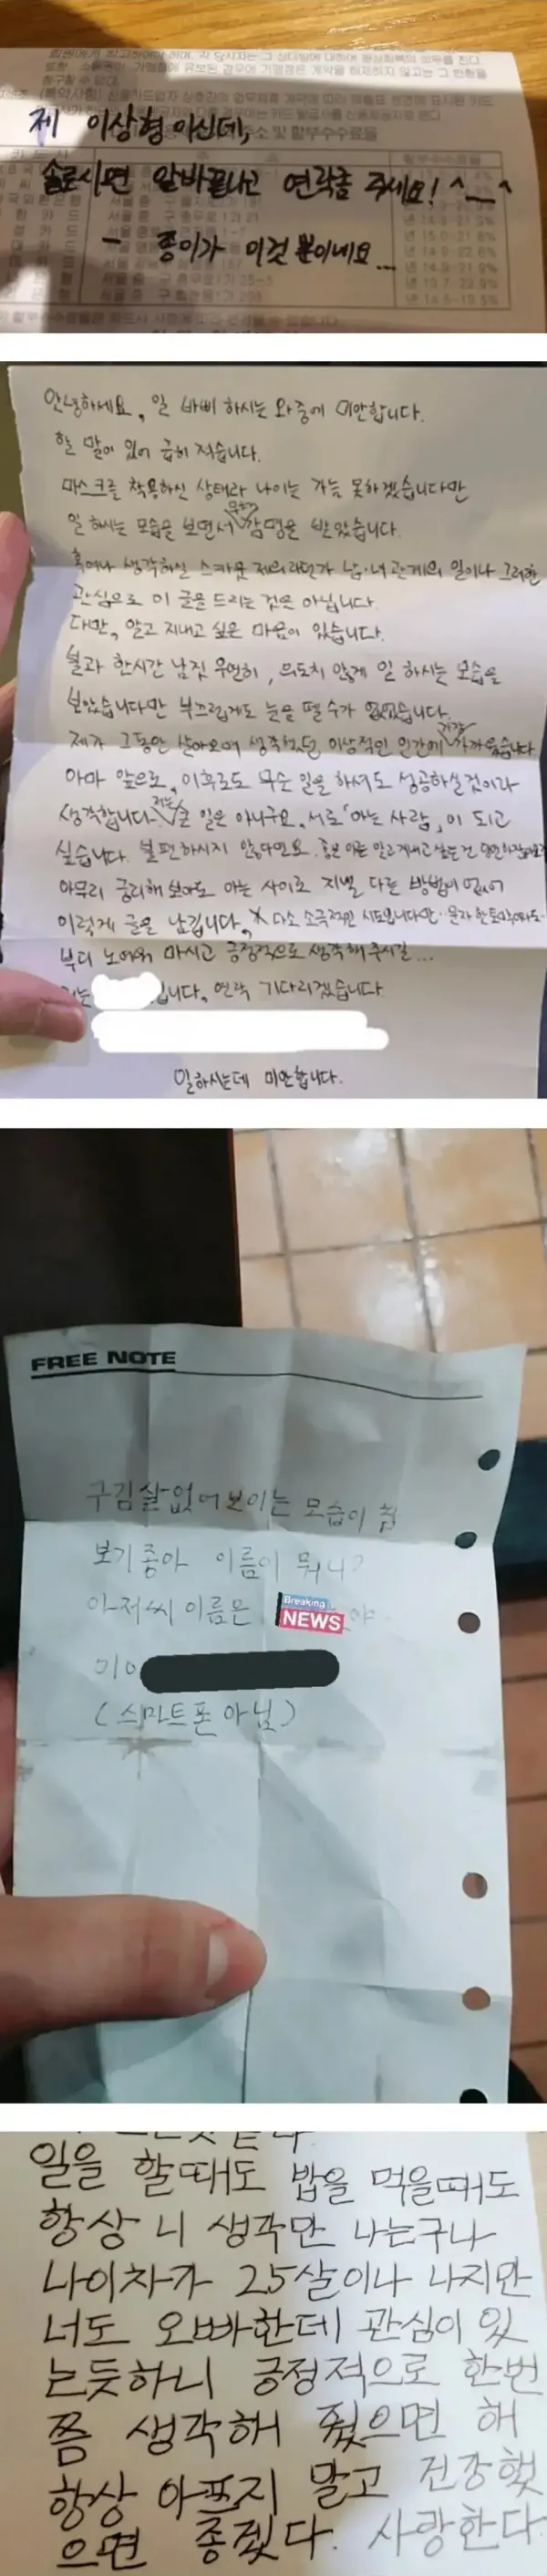 회원에게 최고하여야 하며, 각 당사자는 그 상대방에 대하여 원상회복의 의무를 진다.
제 이상형이신데,
할부수수료율
솔로시면 알바끝나고 연락좀 주세요! ^__^
- 종이가 이것 뿐이네요...
안녕하세요, 일 바삐 하시는 와중에 미안합니다.
할 말이 있어 급히 적습니다.
마스크를 착용하신 상태라 나이는 가늠 못하겠습니다만
일 하시는 모습을 보면서 무척 감명을 받았습니다.
혹여나 생각하실 스카웃 제의라던가 남·녀 관계의 일이나 그러한
관심으로 이 글을 드리는 것은 아닙니다.
다만, 알고 지내고 싶은 마음이 있습니다.
불과 한시간 남짓 우연히, 의도치 않게 일 하시는 모습을
보았습니다만 부끄럽게도 눈을 뗄 수가 없었습니다.
제가 그동안 살아오며 생각했던 이상적인 인간에 가장 가까웠습니다
아마 앞으로, 이후로도 무슨 일을 하셔도 성공하실것이라
생각합니다. 저는 큰 일은 아니구요, 서로 '아는 사람' 이 되고
싶습니다. 불편하시지 않다면요.
아무리 궁리해 보아도 아는 사이로 지낼 다른 방법이 없어
이렇게 글을 남깁니다. 다소 소극적인 시도입니다만
부디 노여워 마시고 긍정적으로 생각해 주시길...
입니다. 연락 기다리겠습니다
일하시는데 미안합니다.
FREE NOTE
구김살없어보이는 모습이 참
보기좋아 이름이 뭐니?
아저씨 이름은 Breaking NEWS 야
010
(스마트폰 아님)
일을 할때도 밥을 먹을때도
항상 니 생각만 나는구나
나이차가 25살이나 나지만
너도 오빠한데 관심이 있
는듯하니 긍정적으로 한번
쯤 생각해 줬으면 해
항상 아프지 말고 건강했
으면 좋겠다. 사랑한다